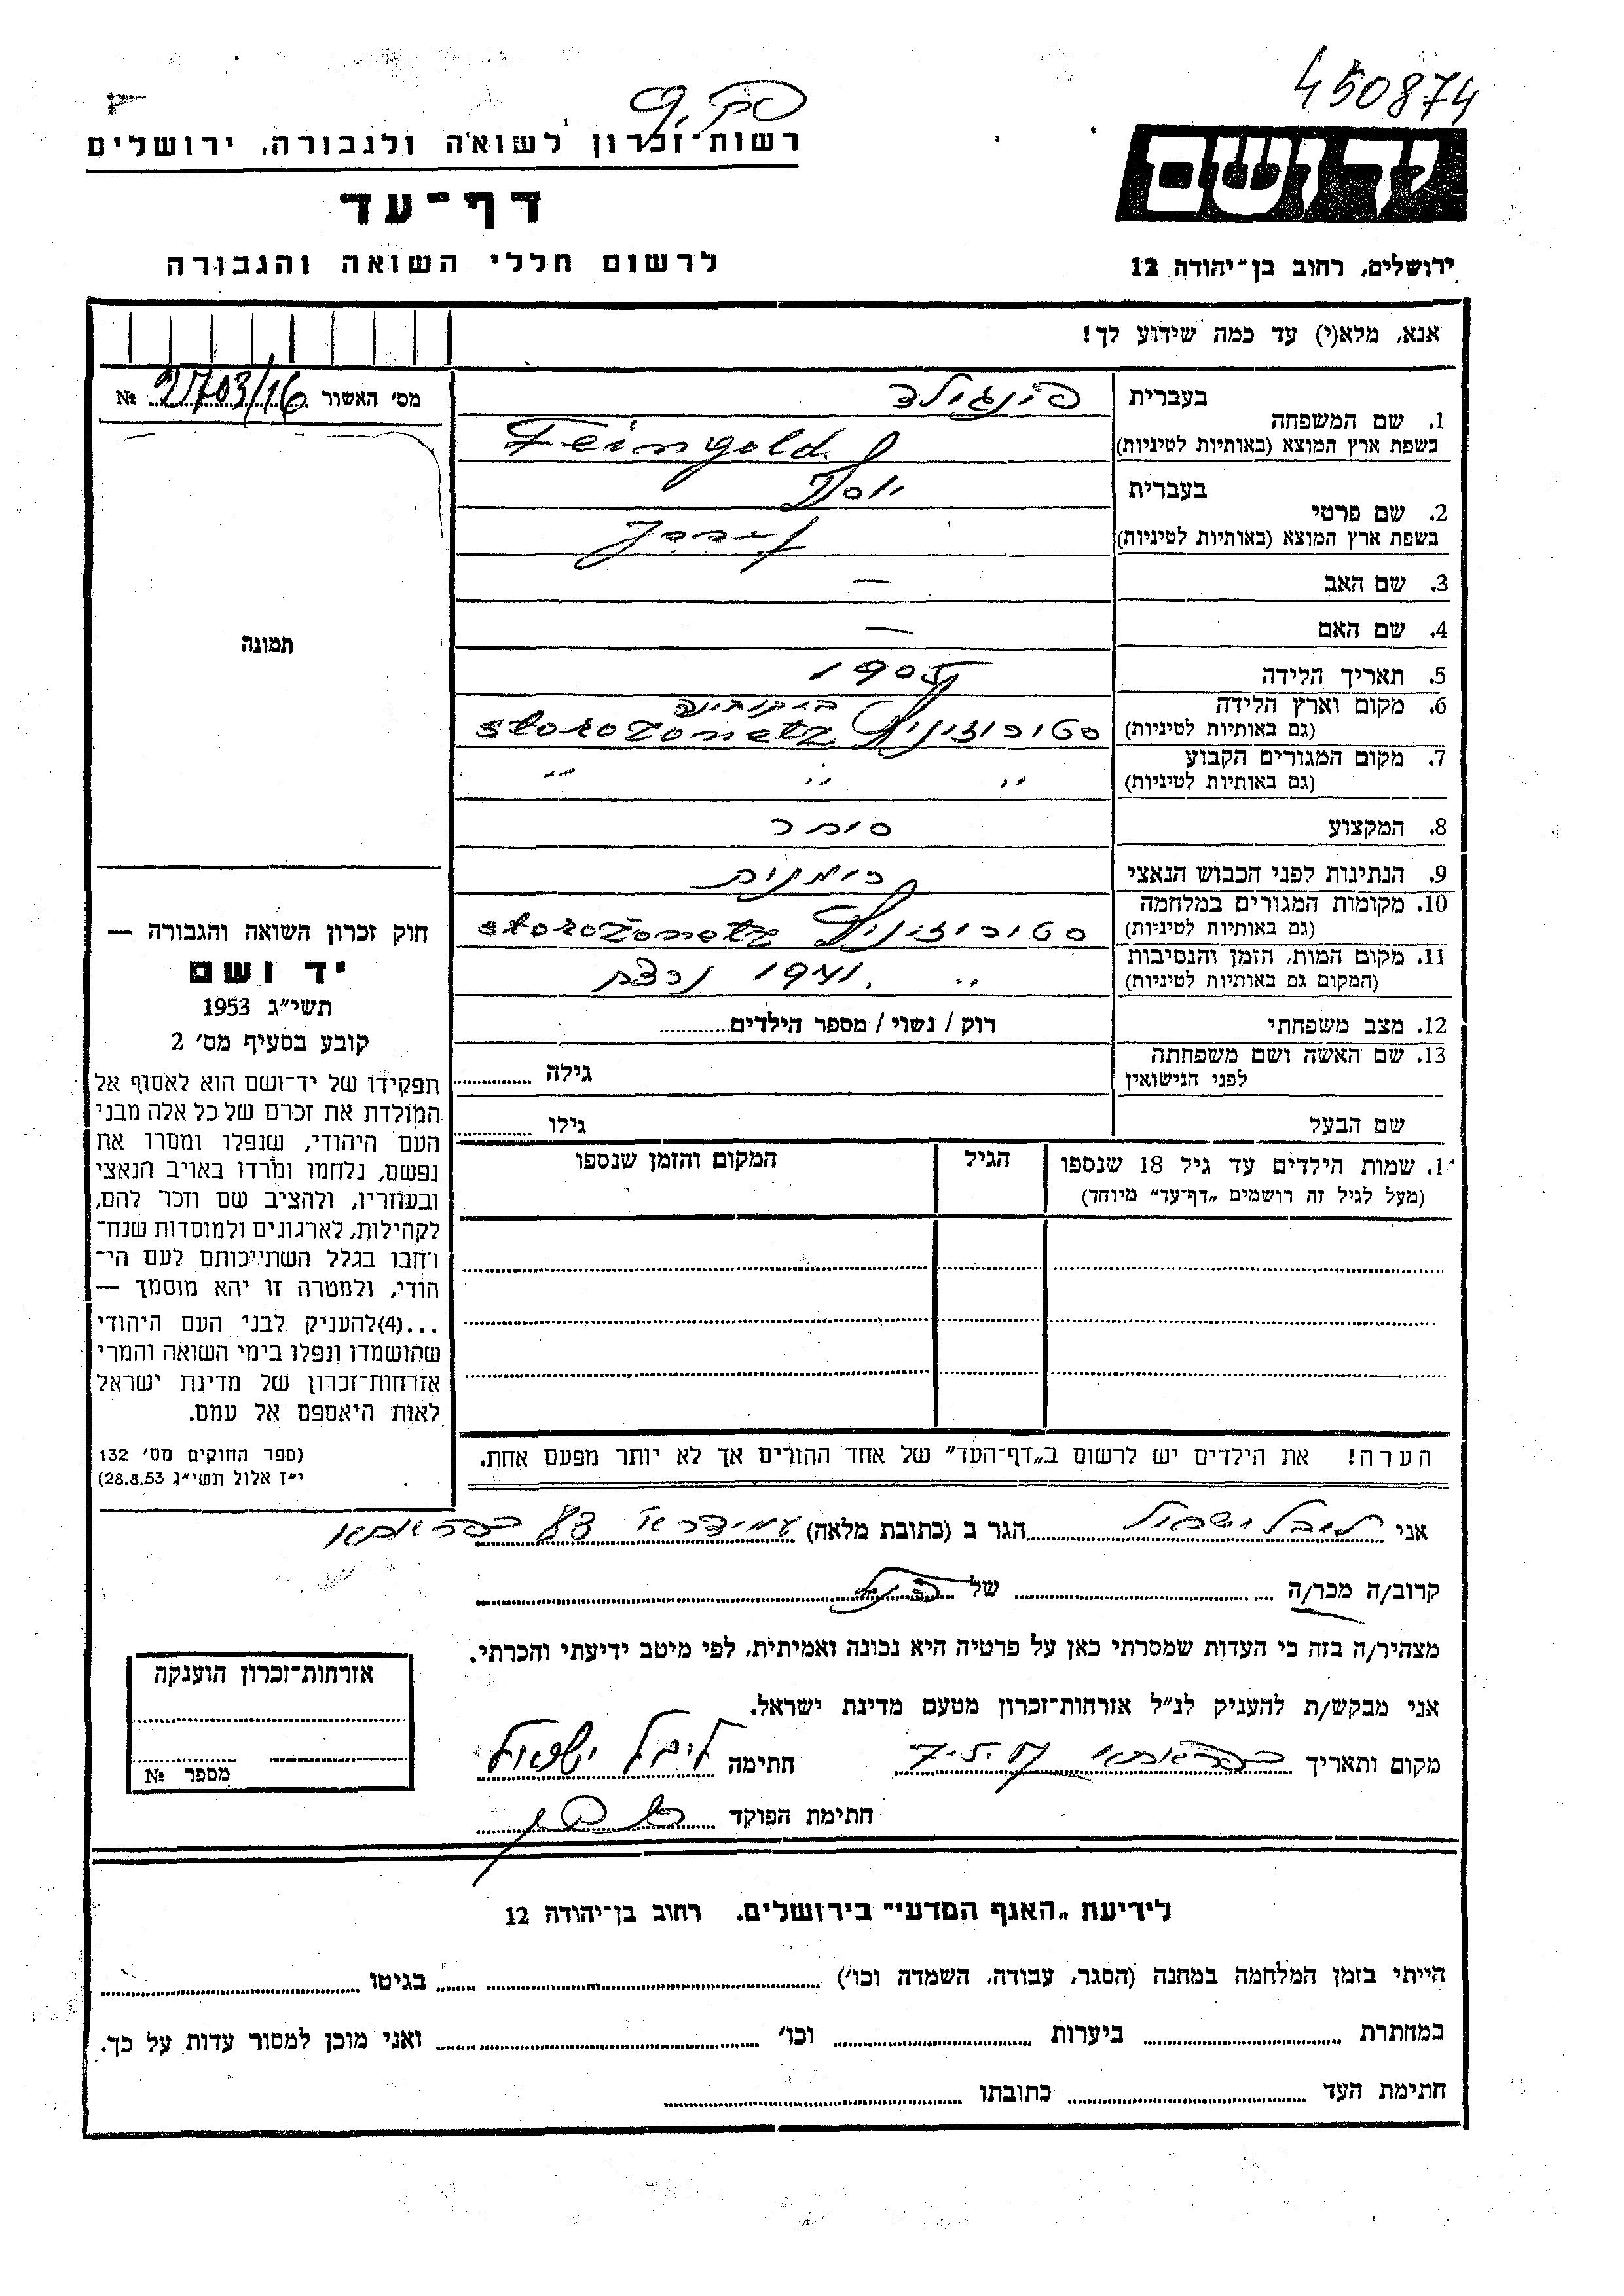 450874
רשות־זכרון לשואה ולגבורה, ירושלים
יד ושם
דף־עד
לרשום חללי השואה והגבורה
ירושלים, רחוב בן־יהודה 12
אנא, מלא(י) עד כמה שידוע לך!
מס׳ האשור 2703/16 №
תמונה
בעברית פינגולד
1. שם המשפחה
בשפת ארץ המוצא (באותיות לטיניות) Feingold
בעברית יוסף
2. שם פרטי
בשפת ארץ המוצא (באותיות לטיניות) Josef
3. שם האב —
4. שם האם —
5. תאריך הלידה 1905
6. מקום וארץ הלידה בוקובינה
(גם באותיות לטיניות) סטורוזניץ storozonetz
7. מקום המגורים הקבוע " " "
(גם באותיות לטיניות)
8. המקצוע סוחר
9. הנתינות לפני הכבוש הנאצי רומנית
10. מקומות המגורים במלחמה
(גם באותיות לטיניות) סטורוזניץ storozonetz
11. מקום המות, הזמן והנסיבות " 1941 נרצח
(המקום גם באותיות לטיניות)
12. מצב משפחתי רוק / נשוי / מספר הילדים
13. שם האשה ושם משפחתה
לפני הנישואין גילה
שם הבעל גילו
1. שמות הילדים עד גיל 18 שנספו הגיל המקום והזמן שנספו
(מעל לגיל זה רושמים „דף־עד” מיוחד)
הערה! את הילדים יש לרשום ב„דף־העד” של אחד ההורים אך לא יותר מפעם אחת.
חוק זכרון השואה והגבורה —
יד ושם
תשי״ג 1953
קובע בסעיף מס׳ 2
תפקידו של יד־ושם הוא לאסוף אל
המולדת את זכרם של כל אלה מבני
העם היהודי, שנפלו ומסרו את
נפשם, נלחמו ומרדו באויב הנאצי
ובעוזריו, ולהציב שם וזכר להם,
לקהילות, לארגונים ולמוסדות שנח־
רבו בגלל השתייכותם לעם הי־
הודי, ולמטרה זו יהא מוסמך —
...(4)להעניק לבני העם היהודי
שהושמדו ונפלו בימי השואה והמרי
אזרחות־זכרון של מדינת ישראל
לאות היאספם אל עמם.
(ספר החוקים מס׳ 132
י״ז אלול תשי״ג 28.8.53)
אני הגר ב (כתובת מלאה)
קרוב/ה מכר/ה של
מצהיר/ה בזה כי העדות שמסרתי כאן על פרטיה היא נכונה ואמיתית, לפי מיטב ידיעתי והכרתי.
אני מבקש/ת להעניק לנ״ל אזרחות־זכרון מטעם מדינת ישראל.
מקום ותאריך חתימה
חתימת הפוקד
אזרחות־זכרון הוענקה
מספר №
לידיעת „האגף המדעי” בירושלים, רחוב בן־יהודה 12
הייתי בזמן המלחמה במחנה (הסגר, עבודה, השמדה וכו׳) בגיטו
במחתרת ביערות וכו׳ ואני מוכן למסור עדות על כך.
חתימת העד כתובתו